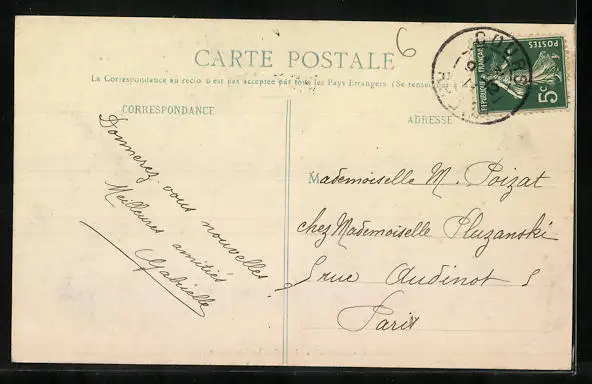 6
CARTE POSTALE
La Correspondance au recto n'est pas acceptée par tous les Pays Etrangers. (Se renseig
CORRESPONDANCE
ADRESSE
COURS
POSTES
REPUBLIQUE FRANÇAISE
5c
Donnerez vous nouvelles!
Meilleures amitiés
Gabrielle
Mademoiselle M. Poizat
chez Mademoiselle Pluzanski
5 rue Audinot 5
Paris